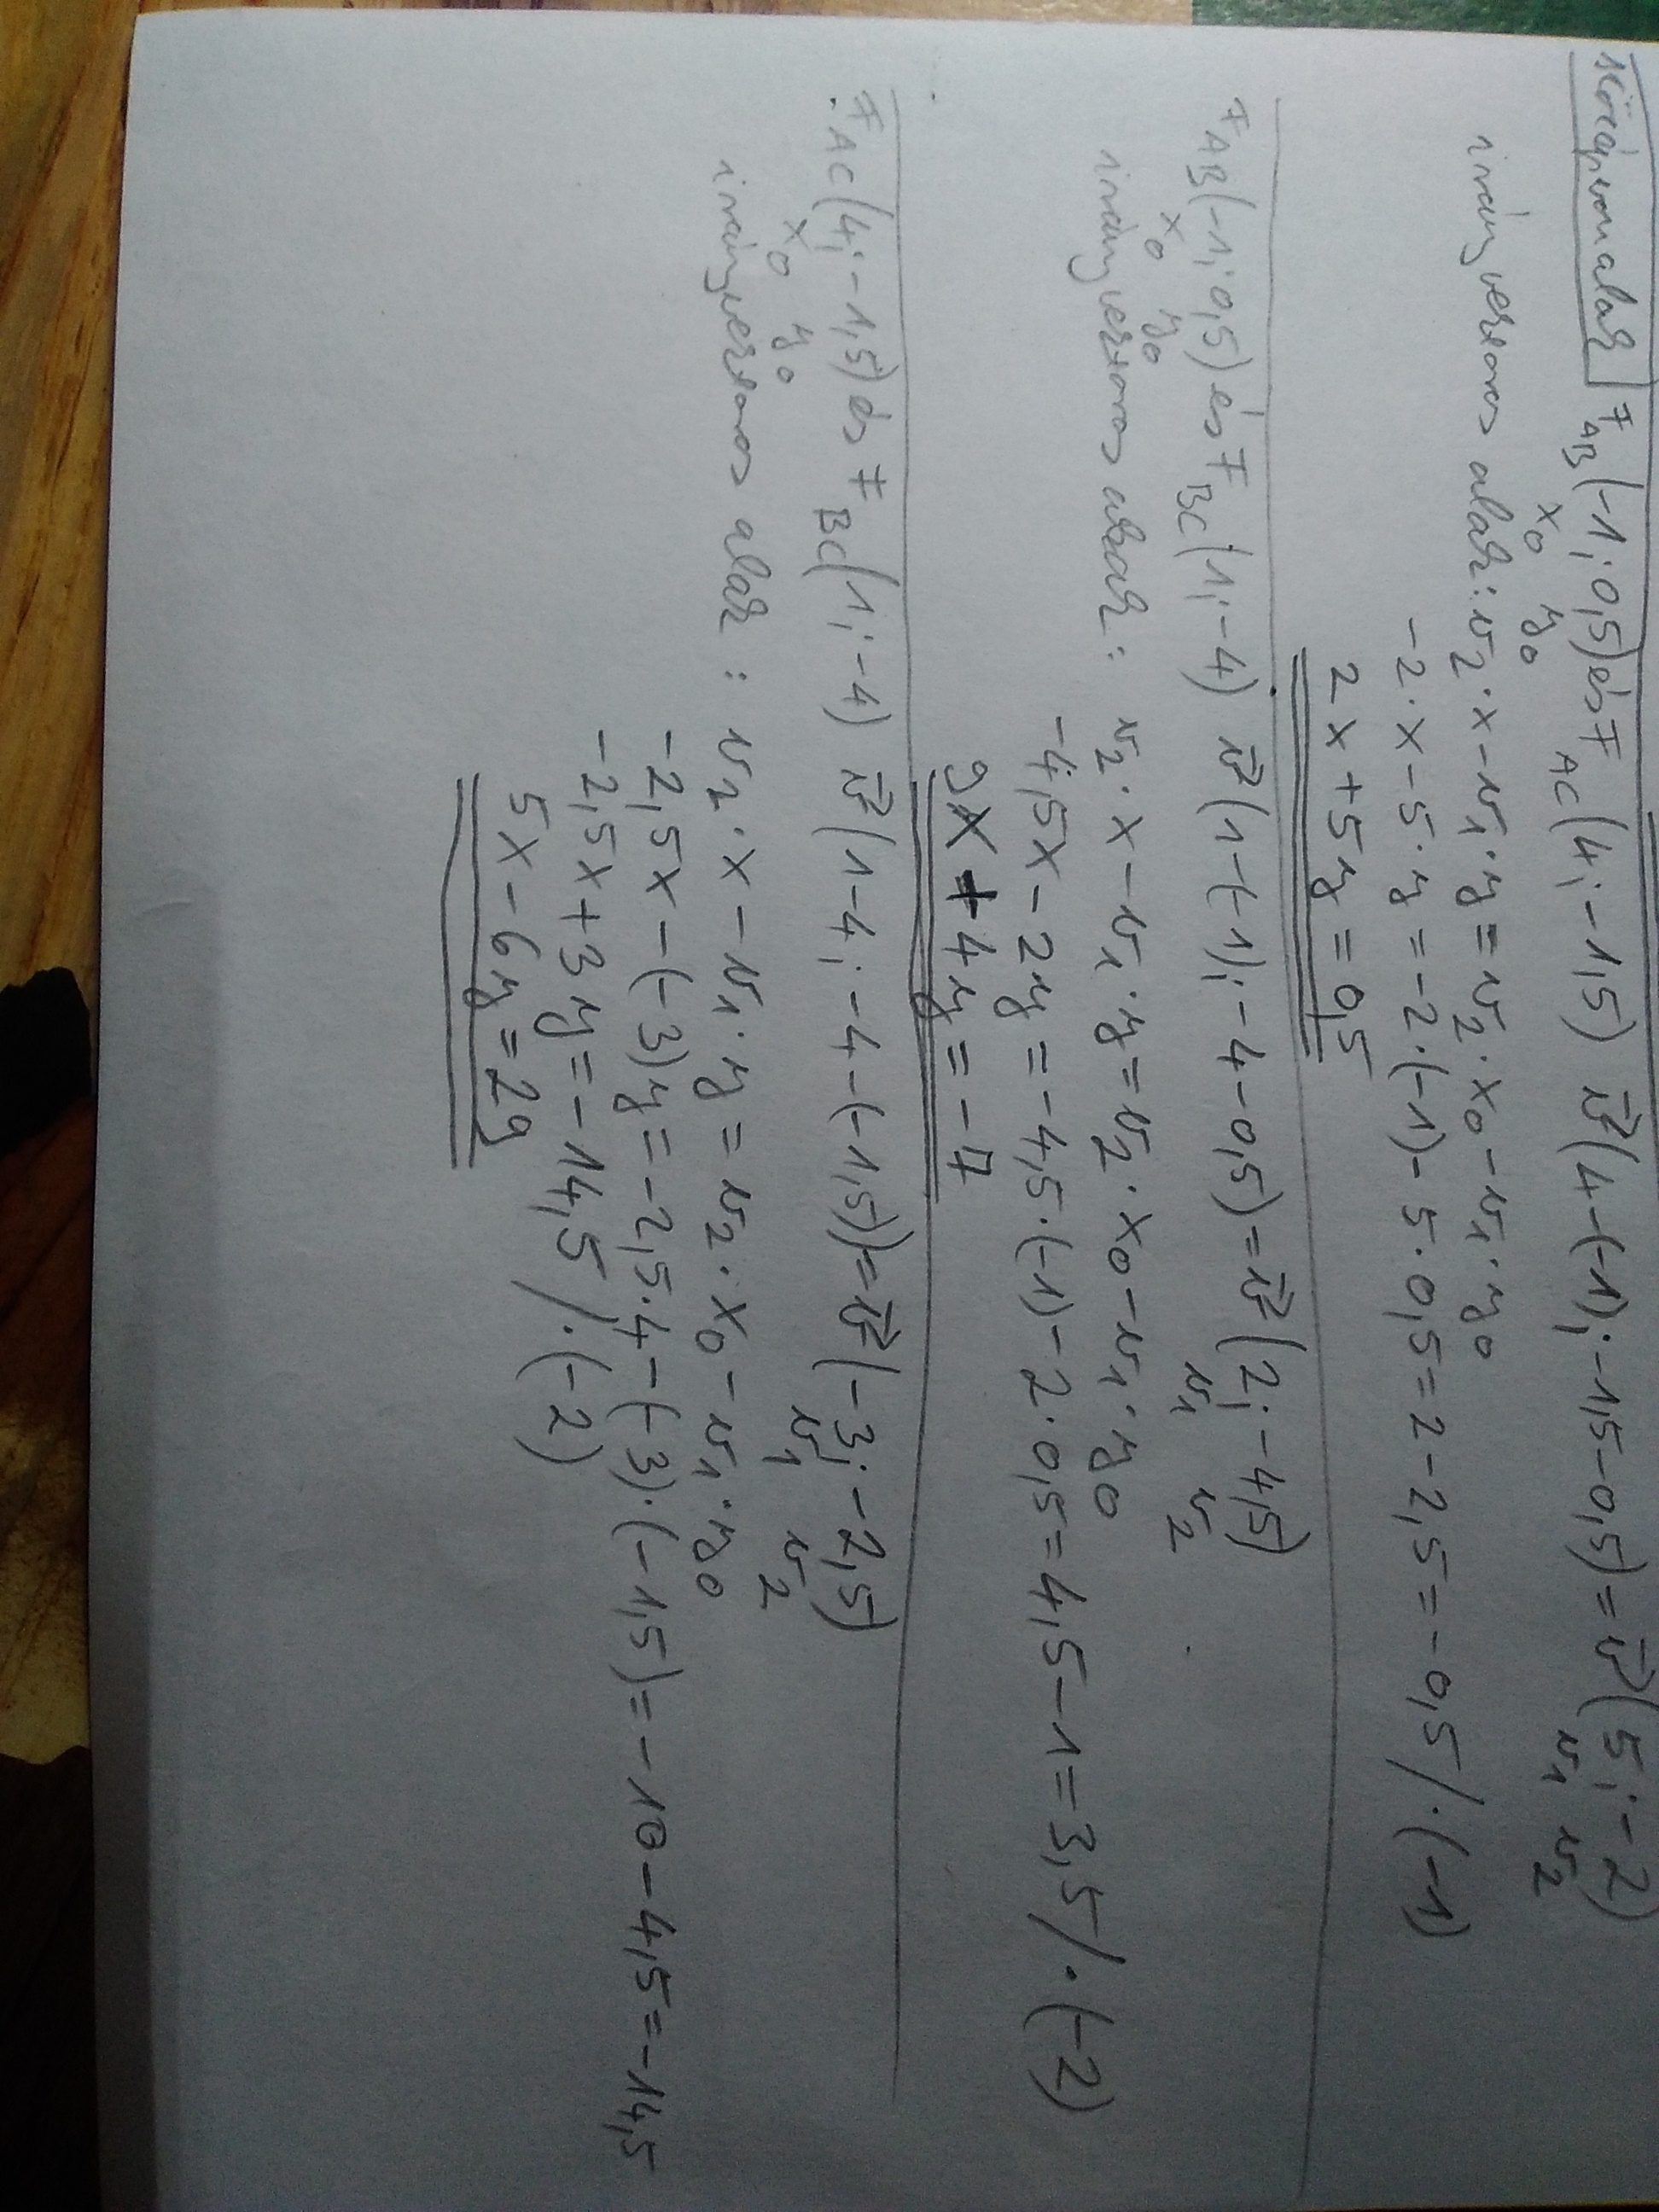 Középvonalak F AB (-1; 0,5) és F AC (4; -1,5) v⃗ (4-(-1); -1,5-0,5) = v⃗ (5; -2)
x₀ y₀ v₁ v₂
irányvektoros alak: v₂·x-v₁·y=v₂·x₀-v₁·y₀
-2·x-5·y=-2·(-1)-5·0,5=2-2,5=-0,5/·(-1)
2x+5y=0,5
F AB (-1; 0,5) és F BC (1; -4) v⃗ (1-(-1); -4-0,5)=v⃗ (2; -4,5)
x₀ y₀ v₁ v₂
irányvektoros alak: v₂·x-v₁·y=v₂·x₀-v₁·y₀
-4,5x-2y=-4,5·(-1)-2·0,5=4,5-1=3,5/·(-2)
9x+4y=-7
F AC (4; -1,5) és F BC (1; -4) v⃗ (1-4; -4-(-1,5))=v⃗ (-3; -2,5)
x₀ y₀ v₁ v₂
irányvektoros alak: v₂·x-v₁·y=v₂·x₀-v₁·y₀
-2,5x-(-3)y=-2,5·4-(-3)·(-1,5)=-10-4,5=-14,5
-2,5x+3y=-14,5/·(-2)
5x-6y=29